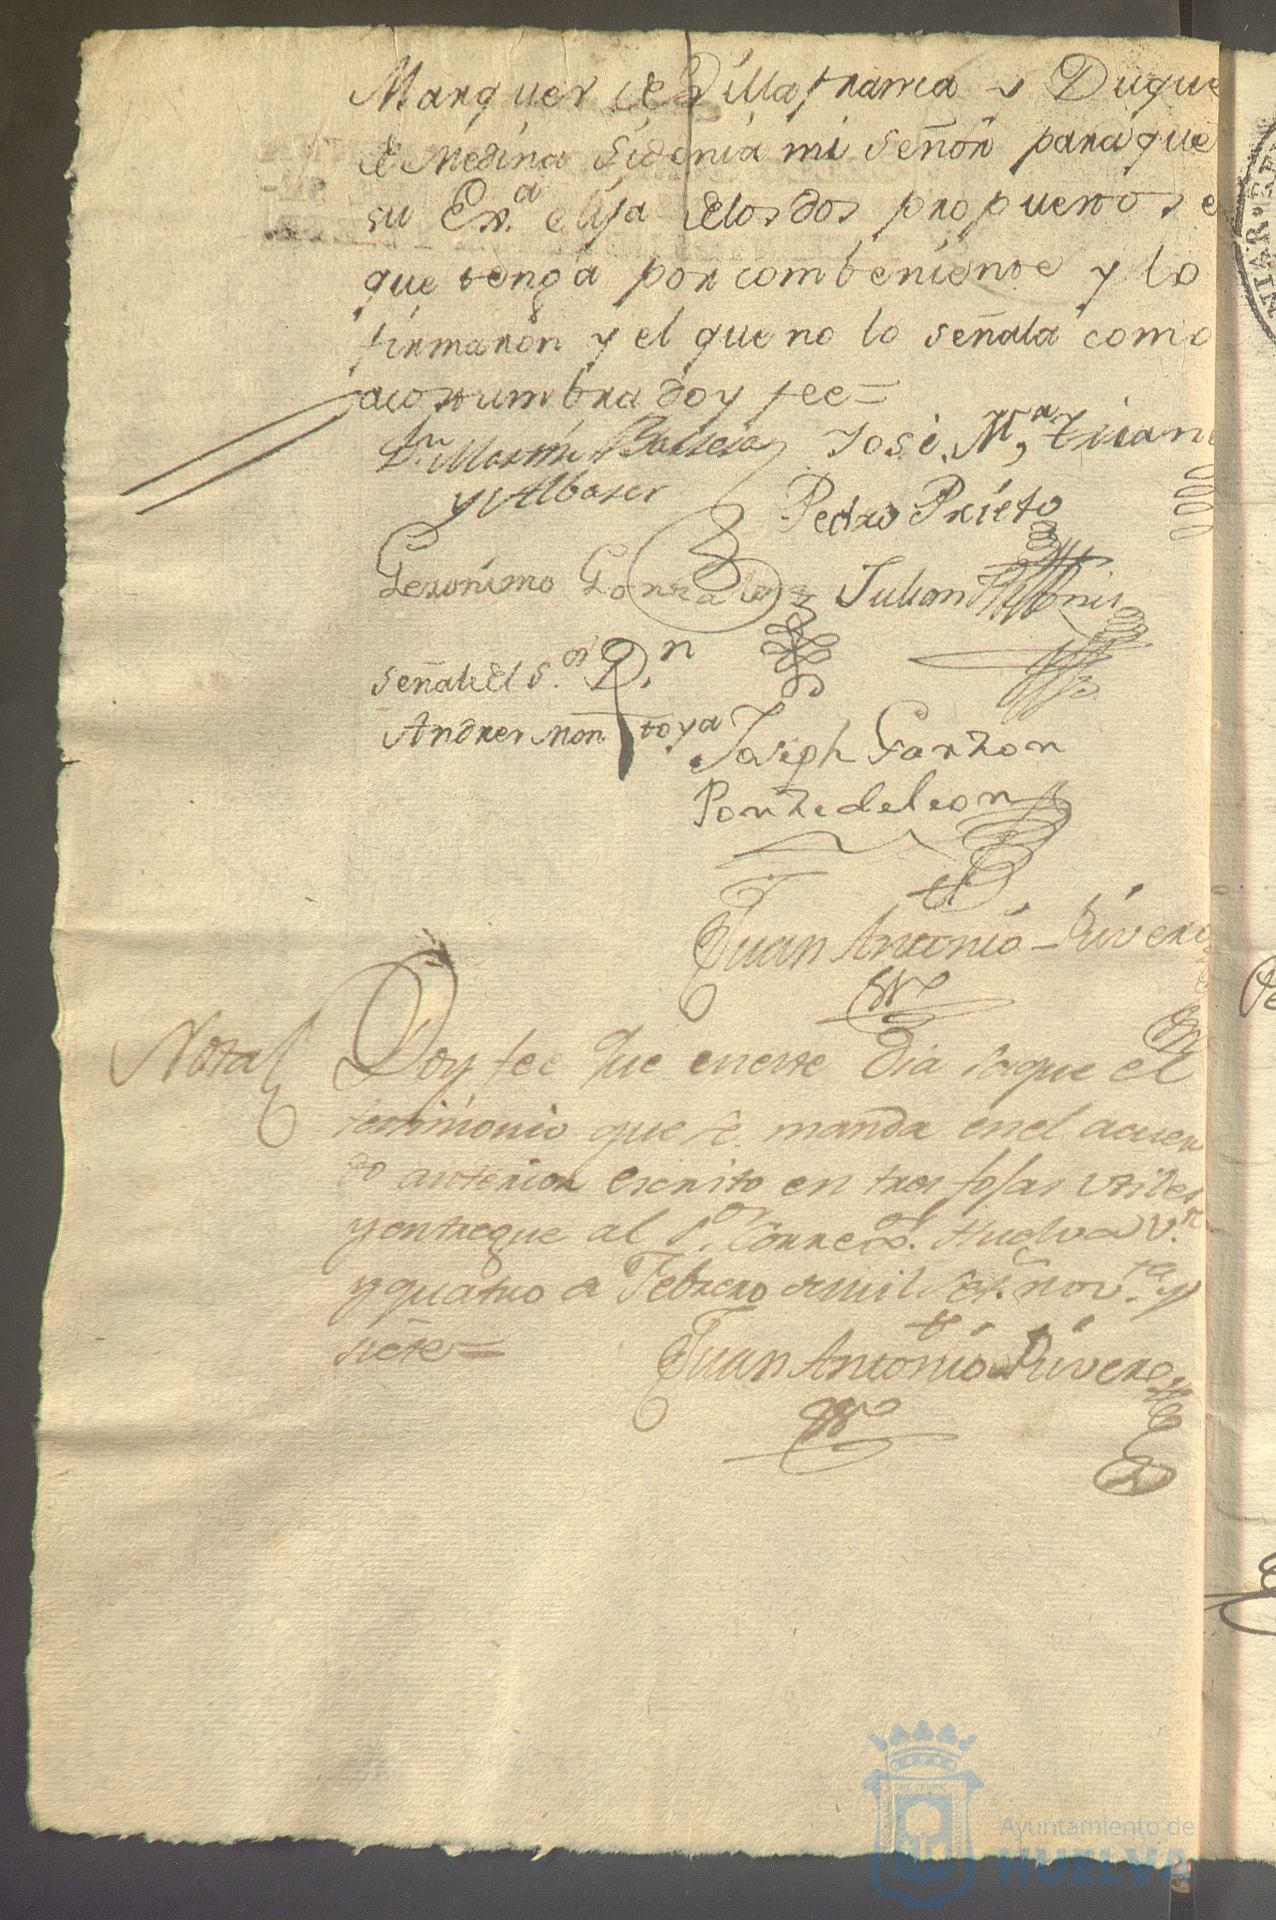 Marques de Villafranca y Duque
de Medina Sidonia mi señor para que
su Ex.ª elija delos dos propuestos e
que tenga por combeniente y lo
firmaron y el que no lo señala como
acostumbra doy fee=
Dn Martin Barrera
y Albaser
José Mª Trian
Pedro Prieto
Geronimo Gonzalez
Julian
señal del S.or D.n
Andres Montoya
Joseph Garzon
Ponze de leon
Juan Antonio Rivero
Nota
Doy fee que eneste dia saque el
testimonio que se manda enel acuer
do anterior escrito en tres fojas utiles
y entregue al S.or Corre.or Huelva v.te
y quatro de Febrero de mil set.s nov.ta y
siete=
Juan Antonio Rivero
Ayuntamiento de
HUELVA